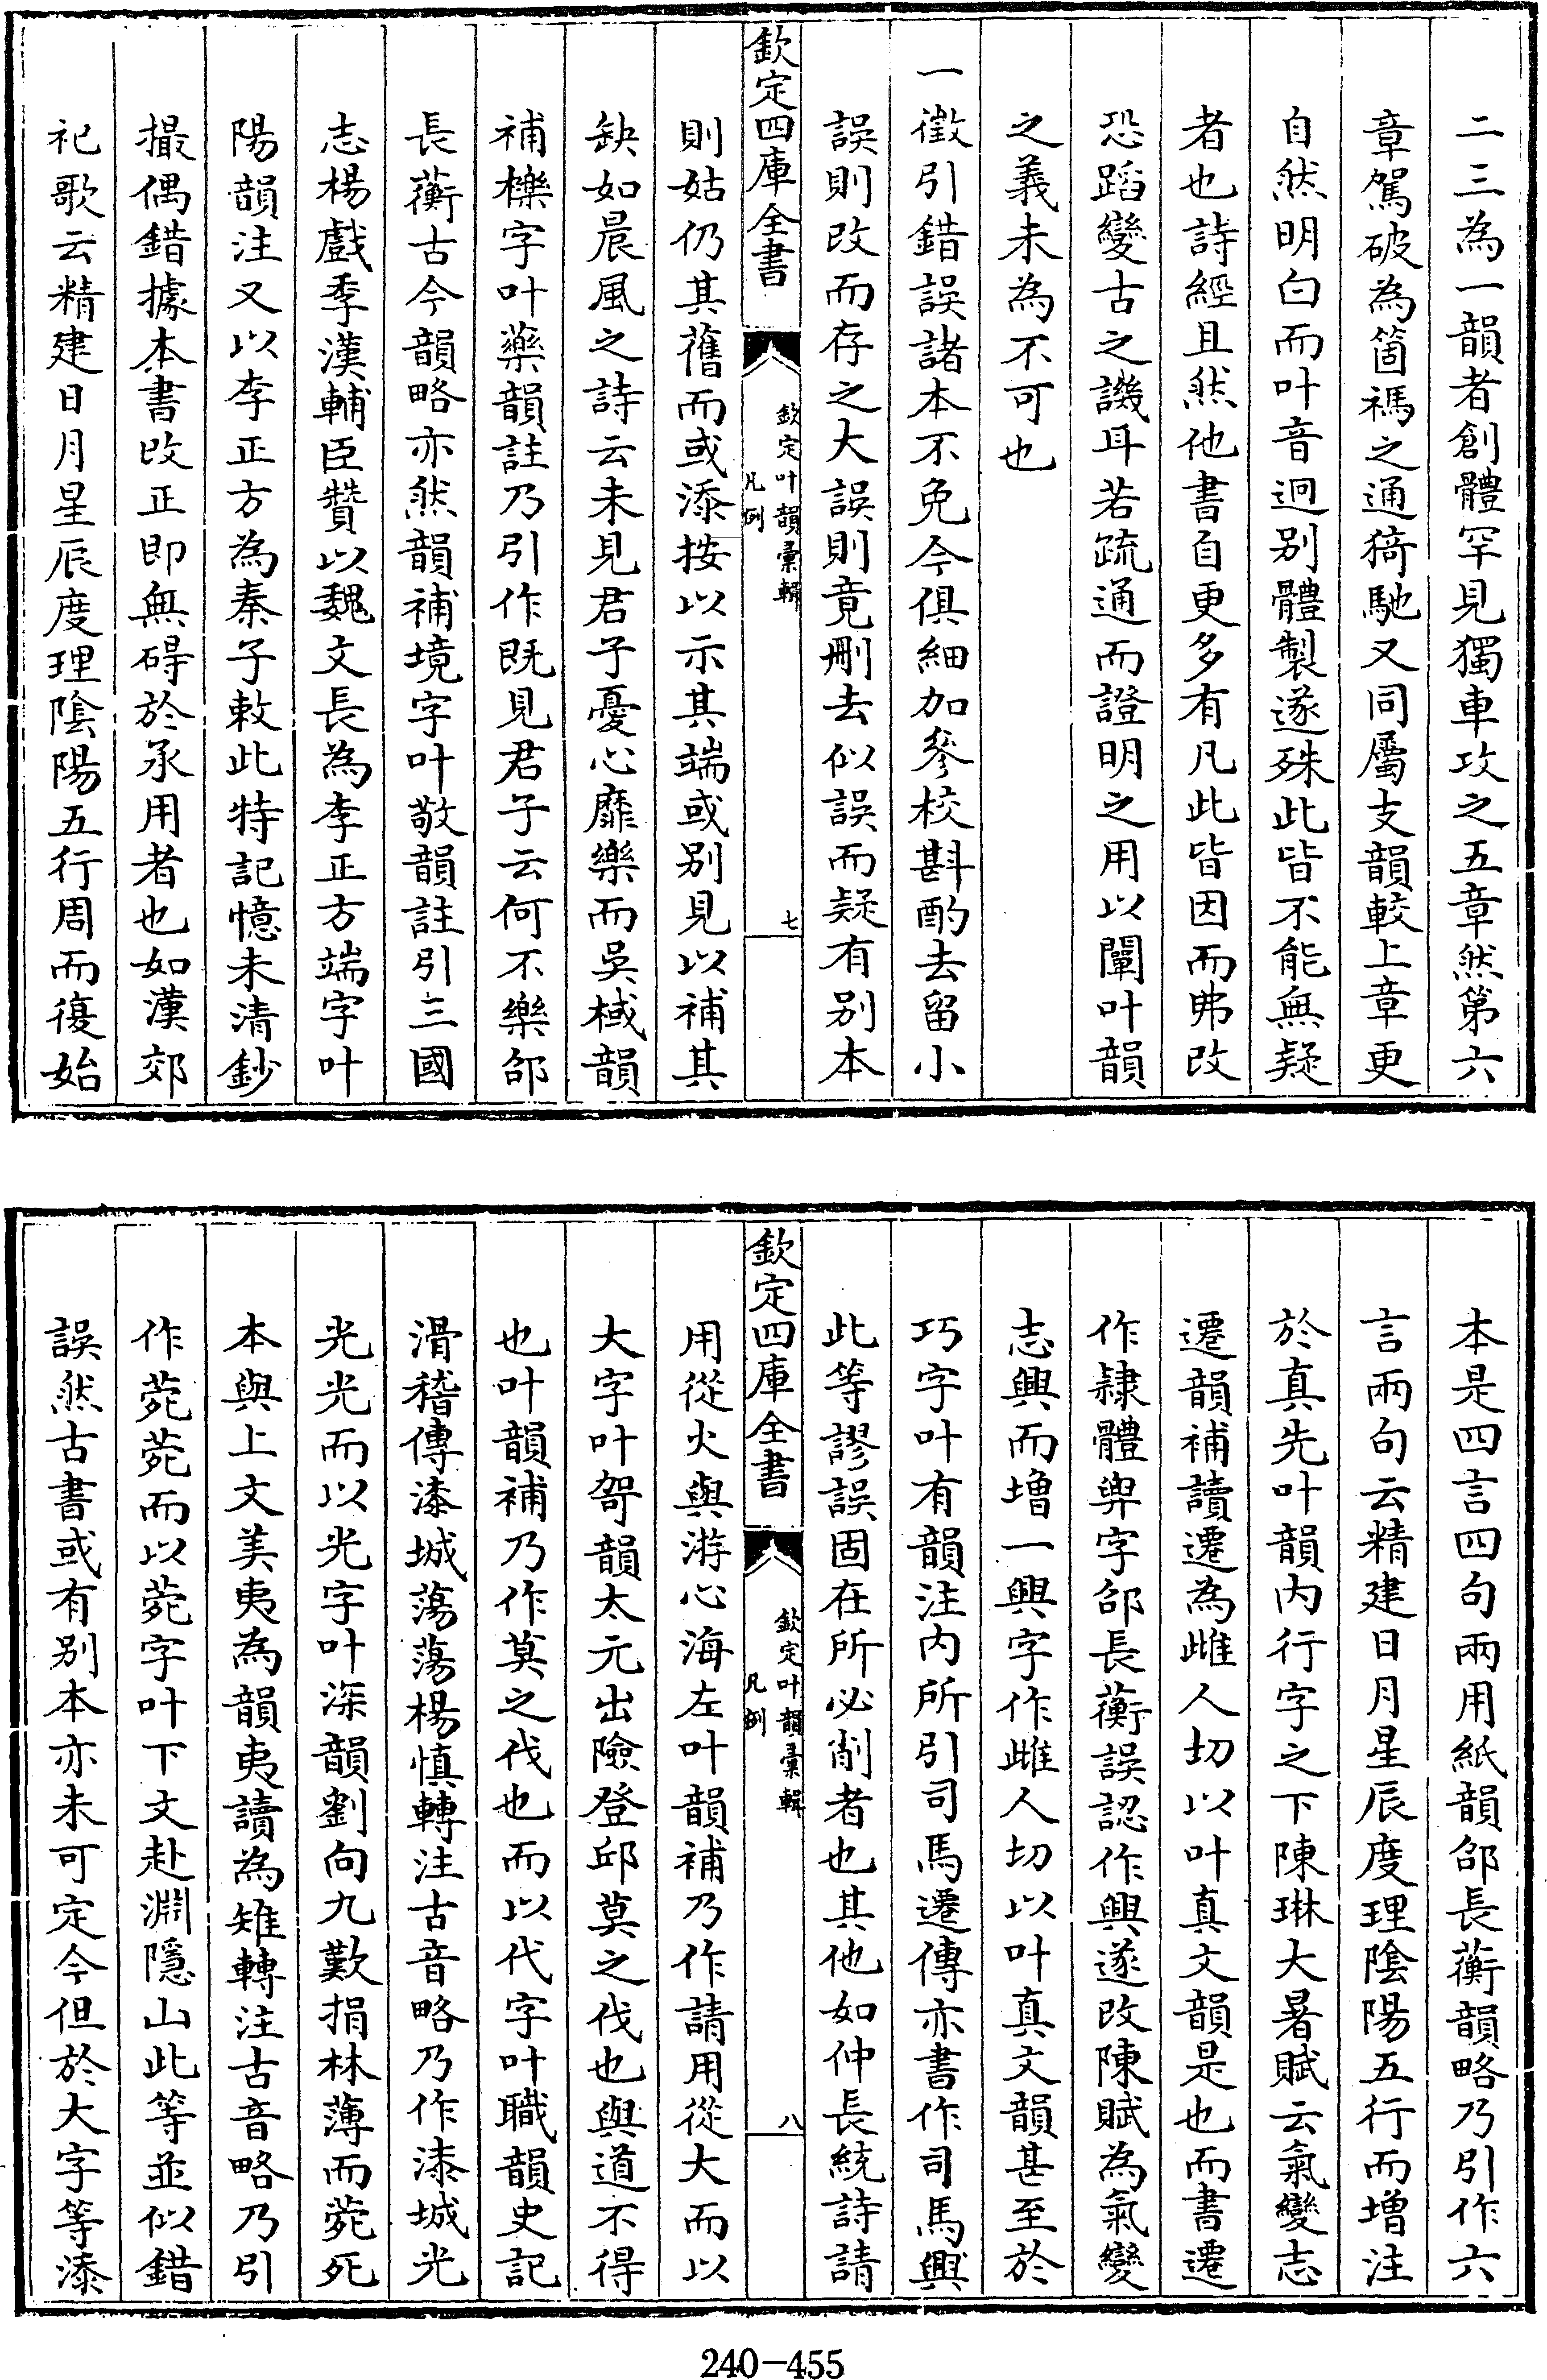 二三為一韻者創體罕見獨車攻之五章然第六
章駕破為箇禡之通猗馳又同屬支韻較上章更
自然明白而叶音迥别體製遂殊此皆不能無疑
者也詩經且然他書自更多有凡此皆因而弗改
恐蹈變古之譏耳若疏通而證明之用以闡叶韻
之義未為不可也
一徵引錯誤諸本不免今俱細加參校斟酌去留小
誤則改而存之大誤則竟刪去似誤而疑有别本
欽定四庫全書
欽定叶韻彙輯
凡例
七
則姑仍其舊而或添按以示其端或别見以補其
缺如晨風之詩云未見君子憂心靡樂而吳棫韻
補櫟字叶藥韻註乃引作既見君子云何不樂邵
長蘅古今韻略亦然韻補境字叶敬韻註引三國
志楊戲季漢輔臣贊以魏文長為李正方端字叶
陽韻注又以李正方為秦子敕此特記憶未清鈔
撮偶錯據本書改正即無碍於承用者也如漢郊
祀歌云精建日月星辰度理隂陽五行周而復始
本是四言四句兩用紙韻邵長蘅韻略乃引作六
言兩句云精建日月星辰度理隂陽五行而增注
於真先叶韻内行字之下陳琳大暑賦云氣變志
遷韻補讀遷為雌人切以叶真文韻是也而書遷
作隷體䙴字邵長蘅誤認作興遂改陳賦為氣變
志興而增一興字作雌人切以叶真文韻甚至於
巧字叶有韻注内所引司馬遷傳亦書作司馬興
此等謬誤固在所必削者也其他如仲長統詩請
欽定四庫全書
欽定叶韻彙輯
凡例
八
用從火與游心海左叶韻補乃作請用從大而以
大字叶哿韻太元出險登邱莫之伐也與道不得
也叶韻補乃作莫之伐也而以代字叶職韻史記
滑稽傳漆城蕩蕩楊慎轉注古音略乃作漆城光
光光而以光字叶深韻劉向九歎捐林薄而菀死
本與上文美夷為韻夷讀為雉轉注古音略乃引
作菀菀而以菀字叶下文赴淵隱山此等並似錯
誤然古書或有别本亦未可定今但於大字等漆
240-455